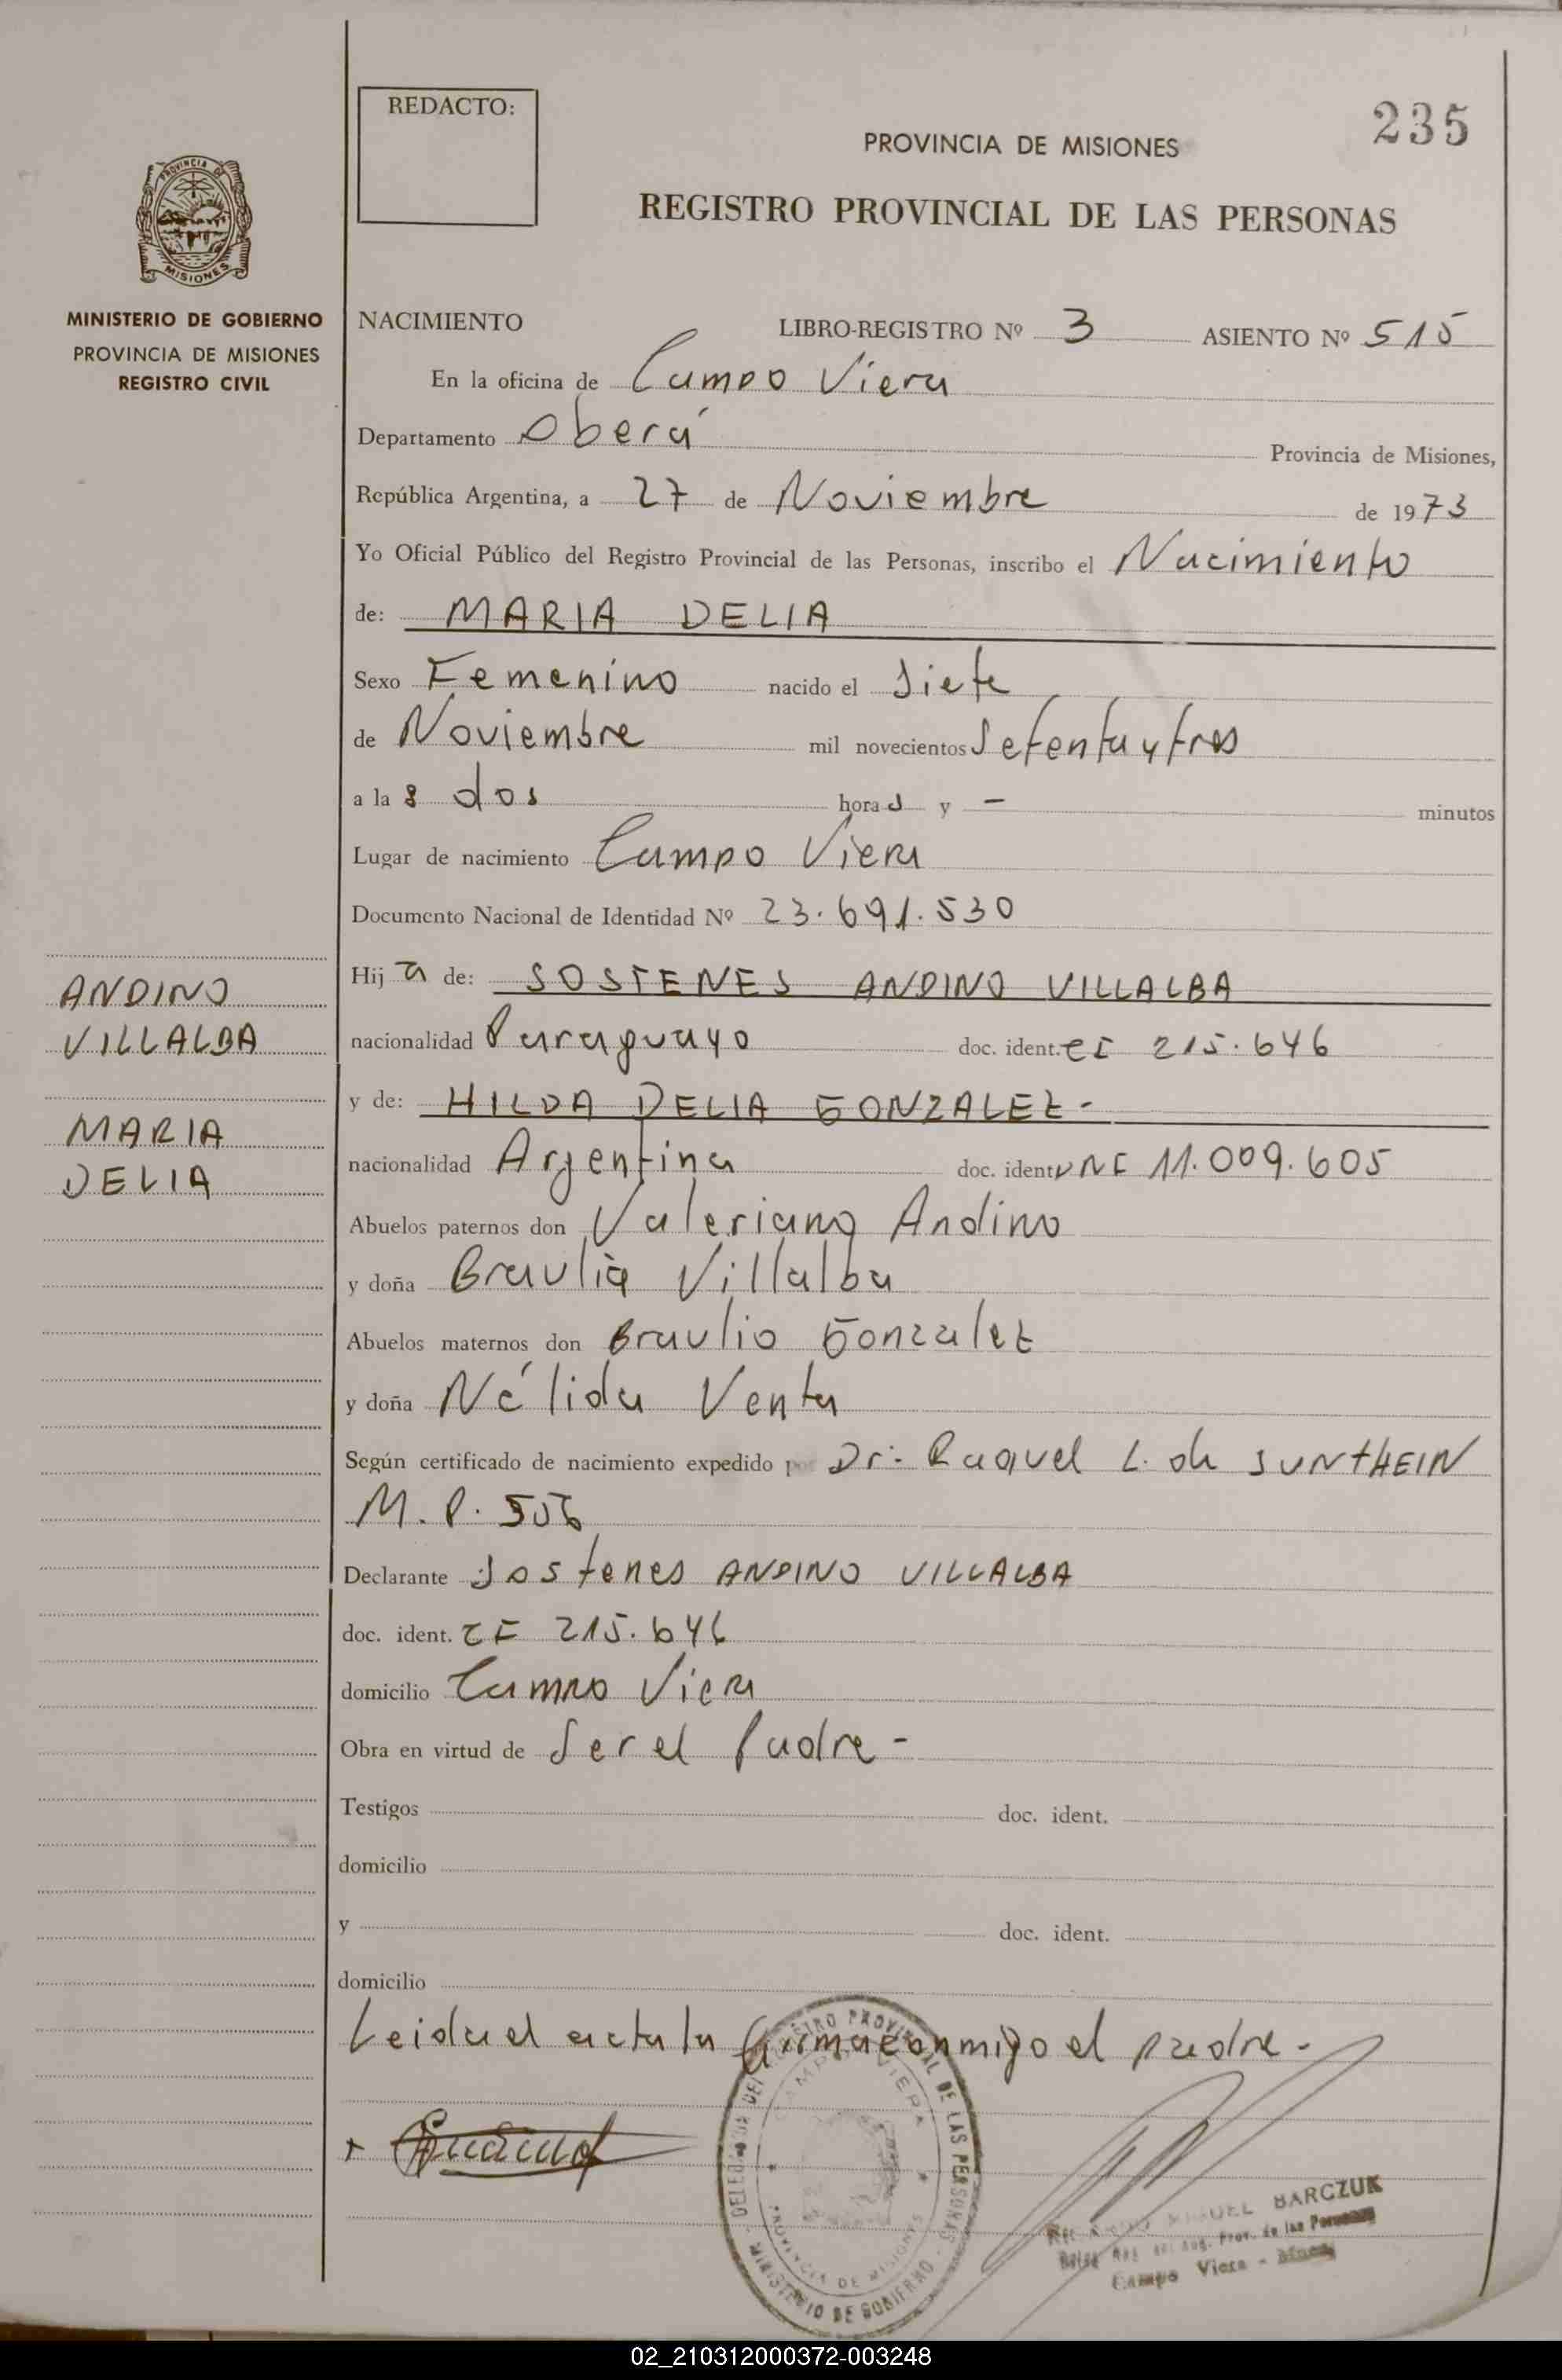 REDACTO:
235
PROVINCIA DE MISIONES
REGISTRO PROVINCIAL DE LAS PERSONAS
PROVINCIA DE
MISIONES
MINISTERIO DE GOBIERNO
PROVINCIA DE MISIONES
REGISTRO CIVIL
NACIMIENTO LIBRO-REGISTRO Nº 3 ASIENTO Nº 515
En la oficina de Campo Viera
Departamento Oberá Provincia de Misiones,
República Argentina, a 27 de Noviembre de 1973
Yo Oficial Público del Registro Provincial de las Personas, inscribo el Nacimiento
de: MARIA DELIA
Sexo Femenino nacido el Siete
de Noviembre mil novecientos Setenta y tres
a la s dos horas y - minutos
Lugar de nacimiento Campo Viera
Documento Nacional de Identidad Nº 23.691.530
ANDINO
VILLALBA
MARIA
DELIA
Hija de: SOSTENES ANDINO VILLALBA
nacionalidad Paraguayo doc. ident. CI 215.646
y de: HILDA DELIA GONZALEZ-
nacionalidad Argentina doc. ident. DNI 11.009.605
Abuelos paternos don Valeriano Andino
y doña Braulia Villalba
Abuelos maternos don Braulio Gonzalez
y doña Nélida Venta
Según certificado de nacimiento expedido por Dr: Raquel L. de SUNTHEIN
M.P. 506
Declarante Sostenes ANDINO VILLALBA
doc. ident. CI 215.646
domicilio Campo Viera
Obra en virtud de Ser el Padre -
Testigos doc. ident.
domicilio
y doc. ident.
domicilio
Leida el acta la firma conmigo el padre.-
DELEGADO DEL REGISTRO PROVINCIAL DE LAS PERSONAS
CAMPO VIERA
PROVINCIA DE MISIONES
MINISTERIO DE GOBIERNO
MIGUEL BARCZUK
Prov. de las Personas
Campo Viera - Mnes.
02_210312000372-003248